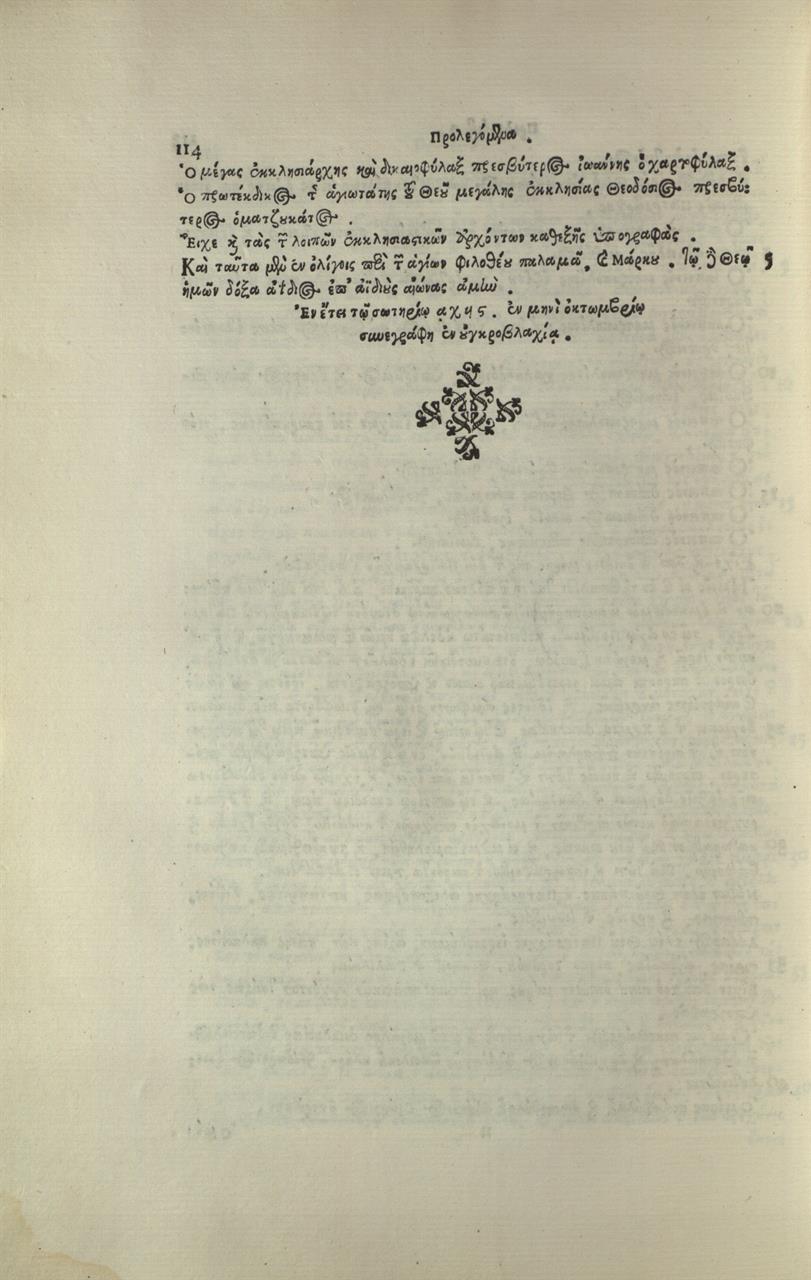 Προλεγόμενα .
114
Ὁ μέγας ἐκκλησιάρχης καὶ δικαιοφύλαξ πρεσβύτερος ἰωάννης ὁ χαρτοφύλαξ .
Ὁ πρωτέκδικος τ ἁγιωτάτης τοῦ Θεοῦ μεγάλης ἐκκλησίας Θεοδόσιος πρεσβύ:
τερος ὁματζουκάτος .
Εἶχε καὶ τὰς τῶν λοιπῶν ἐκκλησιαστικῶν ἀρχόντων καθεξῆς ὑπογραφὰς .
Καὶ ταῦτα μὲν ἐν ὀλίγοις περὶ τῶν ἁγίων φιλοθέου παλαμᾶ, καὶ Μάρκου . Τῷ δὲ Θεῷ 5
ἡμῶν δόξα ἀΐδιος ἐπ' ἀϊδίους αἰώνας ἀμήν .
Ἐν ἔτει τῷ σωτηρίῳ αχϟϛ . ἐν μηνὶ ὀκτωμβρίῳ
συνεγράφη ἐν οὐγκροβλαχίᾳ .